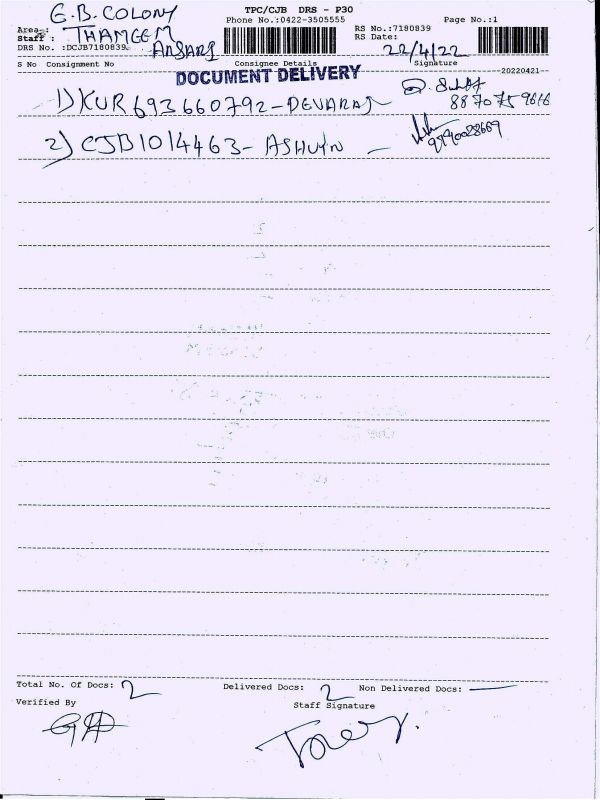 TPC/CJB DRS - P30
Phone No.:0422-3505555
Page No.:1
Area : G.B. COLONY
Staff : THAMEEM ANSARI
DRS No. :DCJB7180839
RS No.:7180839
RS Date: 22/4/22
S No Consignment No Consignee Details Signature
DOCUMENT DELIVERY
20220421
1) KUR693660792 - DEVARAJ
2) CJB1014463 - ASHUIN
Total No. Of Docs: 2 Delivered Docs: 2 Non Delivered Docs: —
Verified By Staff Signature